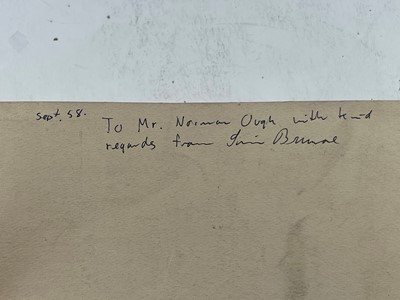 Sept. 58.
To Mr. Norman Ough with kind
regards from